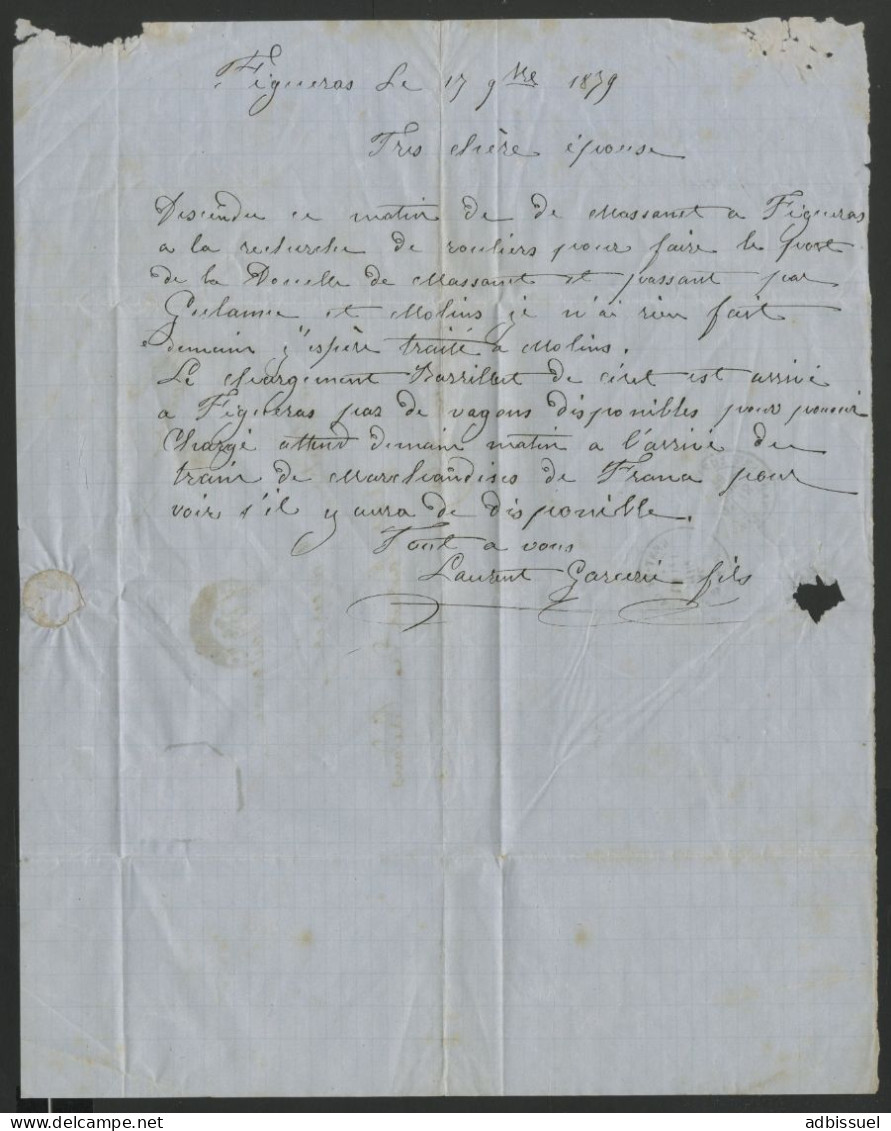 Figueras Le 17 9bre 1879
Tres chère épouse
Descendu ce matin de de Massanet a Figueras
a la recherche de rouliers pour faire le port
de la Douelle de Massanet et passant par
et Molins je n'ai rien fait
demain j'espère traité a Molins.
Le chargement Barrillat de ciret est arrivé
a Figueras pas de vagons disponibles pour pouvoir
chargé attend demain matin a l'arrivé du
train de Marchandises de France pour
voir s'il y aura de disponible.
Tout a vous
Laurent fils
adbissuel